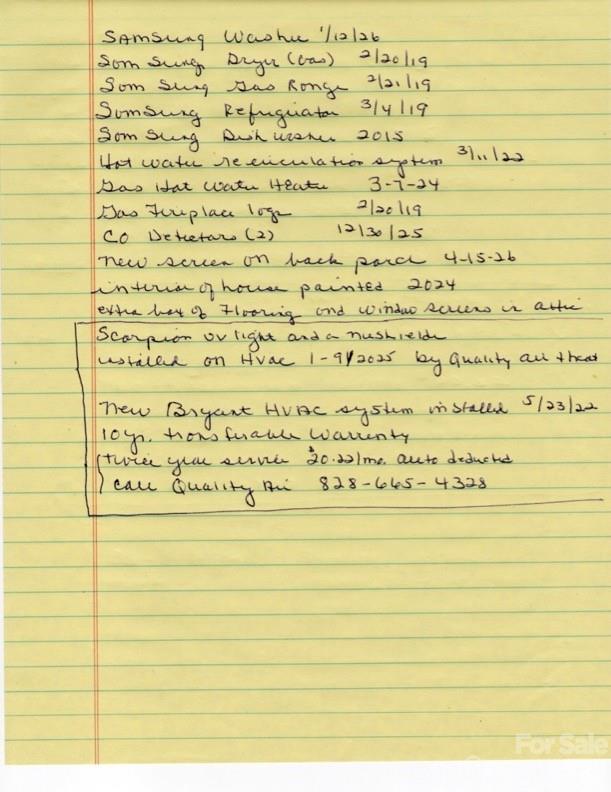 Samsung Washer 1/12/26
Sam Sung Dryer (Gas) 2/20/19
Sam Sung Gas Range 2/21/19
SamSung Refrigerator 3/4/19
Sam Sung Dishwasher 2015
Hot water recirculation system 3/11/22
Gas Hot Water Heater 3-7-24
Gas Fireplace logs 2/20/19
CO Detectors (2) 12/30/25
new screen on back porch 4-15-26
interior of house painted 2024
extra box of Flooring and window screens in attic
Scorpion UV light and a nushield
installed on HVac 1-9/2025 by Quality air + heat
New Bryant HVAC system installed 5/23/22
10 yr. transferable Warrenty
twice year service $20.22/mo. auto deducted
call Quality Air 828-665-4328
For Sale